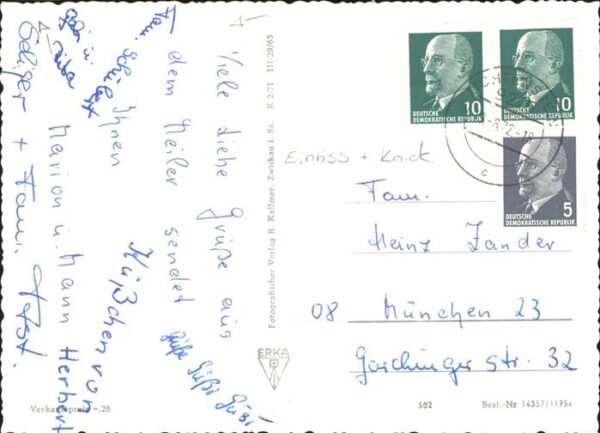 Viele liebe Grüße aus
dem Weiler sendet
Ihnen
Küßchen von
Marion u. Mann Herbert
Seliger + Fam.
Fam.
Verkaufspreis -,25
Fotografischer Verlag R. Kallmer, Zwickau i. Sa. K 271 III/29/65
ERKA
10
DEUTSCHE
DEMOKRATISCHE REPUBLIK
10
DEUTSCHE
DEMOKRATISCHE REPUBLIK
5
DEUTSCHE
DEMOKRATISCHE REPUBLIK
c
Einriss + Knick
Fam.
Heinz Zander
08 München 23
Garchinger Str. 32
502
Best.-Nr 14357/11754